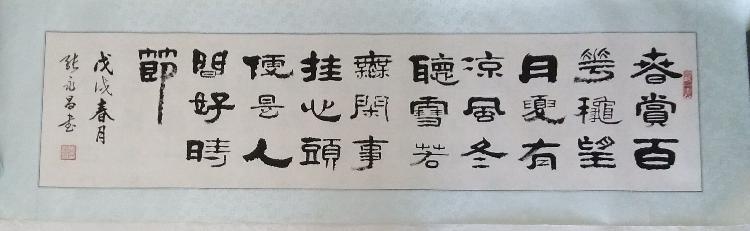 春賞百
花穐望
月夏有
涼風冬
聽雪若
無閑事
挂心頭
便是人
間好時
節
戊戌春月
永昌書